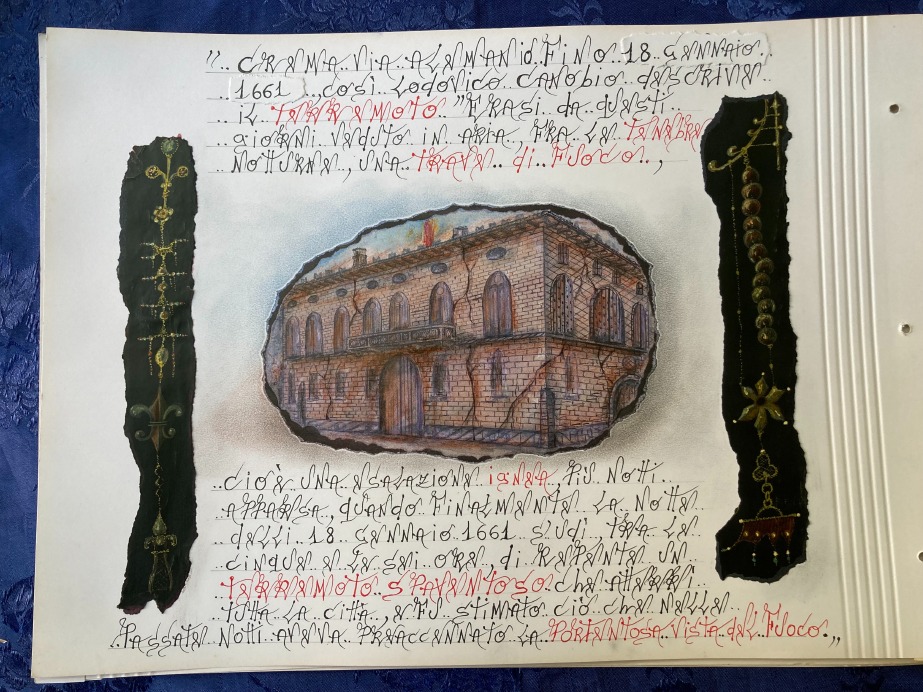 "..CREMA..VIA..ALEMANIO.FINO..18..GENNAIO..
..1661..,COSÌ..LODOVICO..CANOBIO..DESCRIVE..
..IL..TERREMOTO.."ERASI..DA..QUESTI..
..GIORNI..VEDUTO..IN..ARIA..,FRA..LE..TENEBRE
NOTTURNE..,UNA..TRAVE..DI..FUOCO..,
..CIOÈ..UNA..ESALAZIONE..IGNEA..,PIÙ..NOTTI
APPARSA..,QUANDO..FINALMENTE..LA..NOTTE
..DELLI..18..GENNAIO..1661..S'UDÌ..,TRA..LE..
CINQUE..E..LE..SEI..ORE..DI..REPENTE..UN
..TERREMOTO..SPAVENTOSO..CHE..ATTERRÌ..
..TUTTA..LA..CITTÀ..,E..FU..STIMATO..CIÒ..CHE..NELLE..
..PASSATE..NOTTI..AVEVA..PREACCENNATO..LA..PORTENTOSA..VISTA..DEL..FUOCO..„